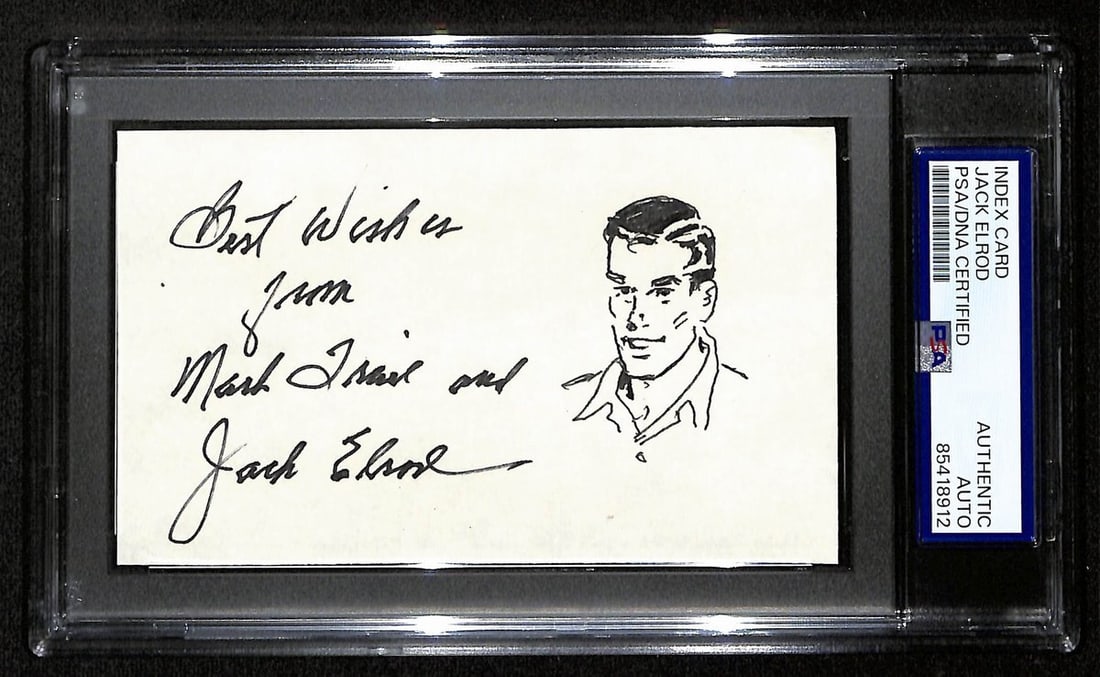 Best Wishes
from
Mark Trail and
Jack Elrod
INDEX CARD
JACK ELROD
PSA/DNA CERTIFIED
AUTHENTIC
AUTO
85418912
PSA